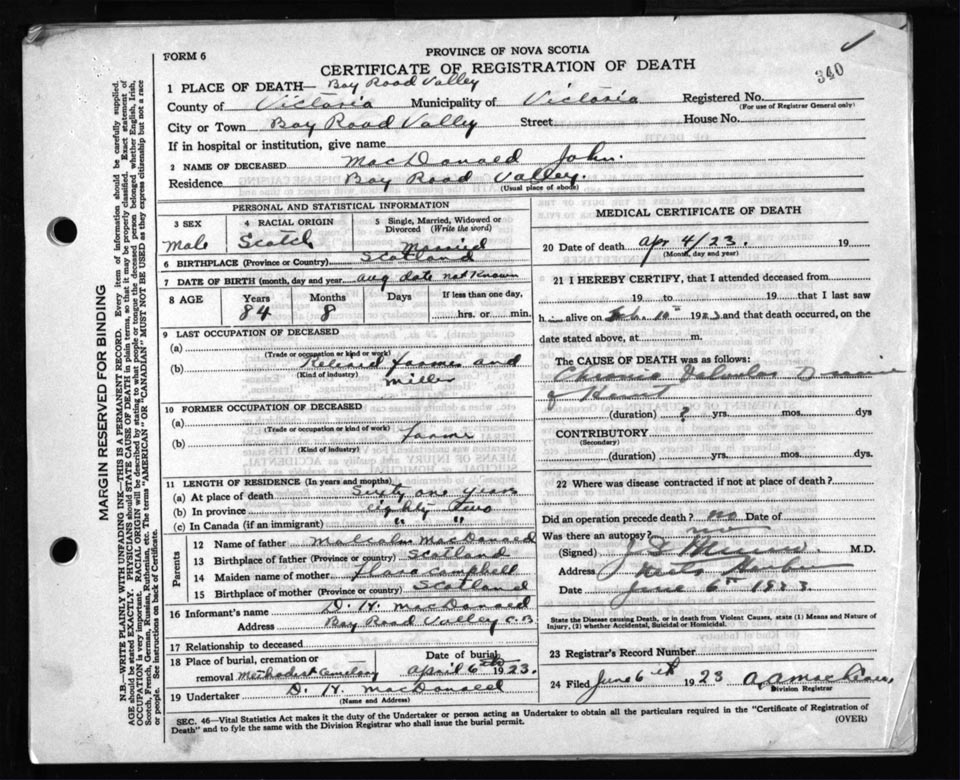 FORM 6
PROVINCE OF NOVA SCOTIA
CERTIFICATE OF REGISTRATION OF DEATH
340
1 PLACE OF DEATH— Bay Road Valley
County of Victoria Municipality of Victoria Registered No.
(For use of Registrar General only)
City or Town Bay Road Valley Street House No.
If in hospital or institution, give name
2 NAME OF DECEASED MacDonald John.
Residence Bay Road Valley.
(Usual place of abode)
PERSONAL AND STATISTICAL INFORMATION
3 SEX
Male
4 RACIAL ORIGIN
Scotch
5 Single, Married, Widowed or
Divorced (Write the word)
Married
6 BIRTHPLACE (Province or Country) Scotland
7 DATE OF BIRTH (month, day and year) Aug date not known
8 AGE Years Months Days If less than one day,
84 8 hrs. or min.
9 LAST OCCUPATION OF DECEASED
(a)
(Trade or occupation or kind or work)
(b) Retired farmer and
(Kind of industry) Miller
10 FORMER OCCUPATION OF DECEASED
(a)
(Trade or occupation or kind of work)
(b) Farmer
(Kind of industry)
11 LENGTH OF RESIDENCE (In years and months)
(a) At place of death Sixty one years
(b) In province eighty two
(c) In Canada (if an immigrant) " "
Parents
12 Name of father Malcolm MacDonald
13 Birthplace of father (Province or country) Scotland
14 Maiden name of mother Flora Campbell
15 Birthplace of mother (Province or country) Scotland
16 Informant's name D. H. MacDonald
Address Bay Road Valley C.B.
17 Relationship to deceased
18 Place of burial, cremation or Date of burial
removal Methodist Cemetery April 6th 1923.
19 Undertaker D. H. MacDonald
(Name and Address)
MEDICAL CERTIFICATE OF DEATH
20 Date of death Apr 4/23. 19
(Month, day and year)
21 I HEREBY CERTIFY, that I attended deceased from
19 to 19 that I last saw
h alive on Feb. 10th 1923 and that death occurred, on the
date stated above, at m.
The CAUSE OF DEATH was as follows:
Chronic Valvular Disease
of Heart
(duration) ? yrs. mos. dys
CONTRIBUTORY
(Secondary)
(duration) yrs. mos. dys.
22 Where was disease contracted if not at place of death?
Did an operation precede death? no Date of
Was there an autopsy? no
(Signed) M.D.
Address Neils Harbour
Date June 6th 1923
State the Disease causing Death, or in death from Violent Causes, state (1) Means and Nature
of Injury, (2) whether Accidental, Suicidal or Homicidal.
23 Registrar's Record Number
24 Filed June 6th 1923
Division Registrar
SEC. 46—Vital Statistics Act makes it the duty of the Undertaker or person acting as Undertaker to obtain all the particulars required in the "Certificate of Registration of
Death" and to fyle the same with the Division Registrar who shall issue the burial permit. (OVER)
MARGIN RESERVED FOR BINDING
N.B.—WRITE PLAINLY WITH UNFADING INK—THIS IS A PERMANENT RECORD. Every item of information should be carefully supplied.
AGE should be stated EXACTLY. PHYSICIANS should STATE CAUSE OF DEATH in plain terms, so that it may be properly classified. Exact statement of
OCCUPATION is very important. RACIAL ORIGIN will be described by stating to what people or tongue the deceased person belonged whether English, Irish,
Scotch, French, German, Russian, Ruthenian, etc. The terms "AMERICAN" or "CANADIAN" MUST NOT BE USED as they express citizenship but not a race
or people. See instructions on back of Certificate.